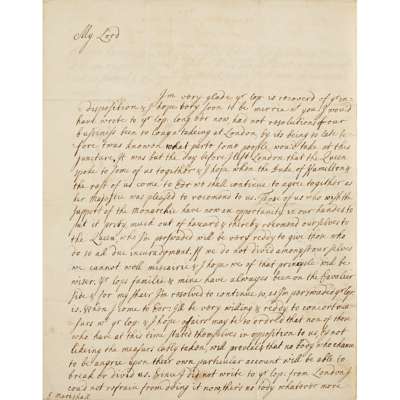 My Lord
I'm very glade yr Lop is recovered of yr in-
disposition & I hope very soon to be merrie wt you I would
have wrote to yr Lop long ere now had not resolutions of our
bussiness been so long a takeing at London, by its being so late be-
fore it was knowen what part some people would take at this
juncture, it was but the day before I left London that the Queen
spoke to some of us together & I hope when the Duke of Hamilton &
the rest of us come to Edr we shall continue to agree together as
her Majestie was pleased to recomend to us. Those of us who wish the
support of the monarchie have now an opportunity in our handes to
put it pritty much out of hazard & thereby recomend ourselves to
the Queen, who I'm perswaded will be very redy to give those who
do so all due incuradgment. If we do not divid among our selves
we cannot well miscairie & I hope we of that principle will be
wiser. Yr Lops familie & mine have allwayes been on the Cavalier
side & for my shair I'm resolved to continue so, as I'm perswaded yr Lop
is. When I come to Edr I'll be very willing & redy to concert mea-
sures wt yr Lop & I hope afairs may be so ordord that non of those
who have at this time stated themselves in oposition to us, by not
likeing the measurs latly taken, will preveal; that no body who chance
to be angrie upon their own particular account will be able to
break or divid us. Since I did not write to yr Lop from London, I
could not refrain from doing it now, ther's no body whatever more
E Marishall